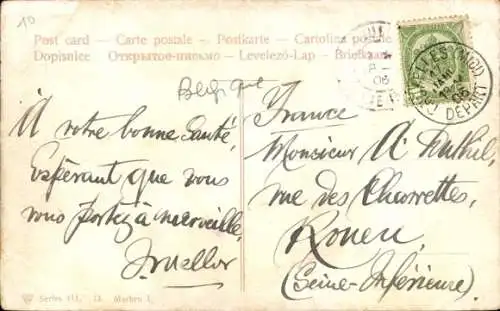 10
Post card — Carte postale — Postkarte — Cartolina postale
Dopisnice — Открытое-письмо — Levelező-Lap — Briefkaart
Belgique
À votre bonne Santé,
Espérant que vous
vous portez à merveille,
France
Monsieur A.
rue des Charrettes,
Rouen,
(Seine-Inférieure).
Series 111.
DÉPART
06